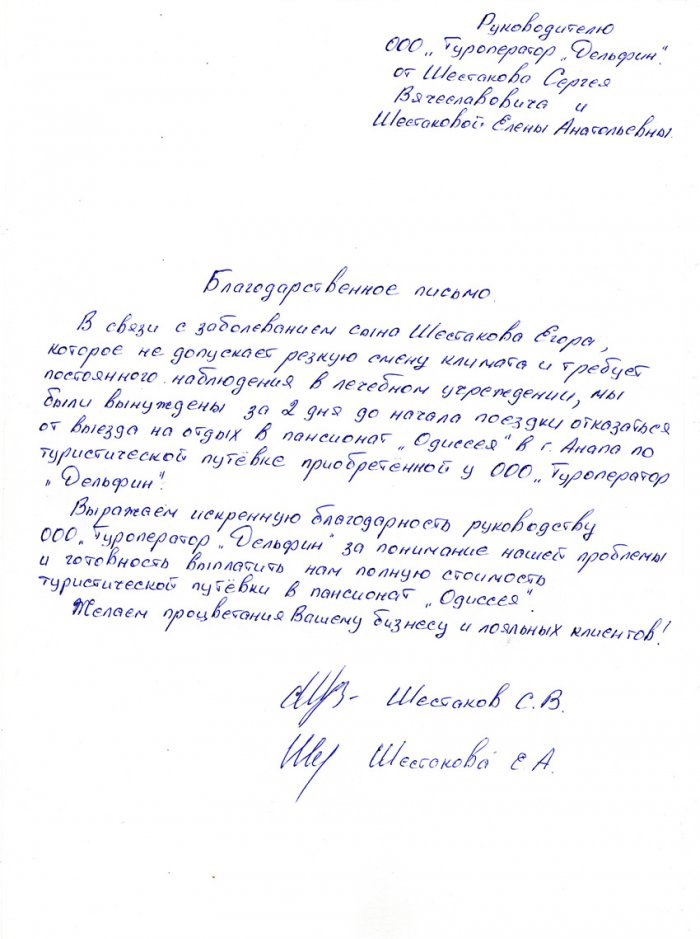 Руководителю
ООО „Туроператор „Дельфин".
от Шестакова Сергея
Вячеславовича и
Шестаковой Елены Анатольевны.
Благодарственное письмо.
В связи с заболеванием сына Шестакова Егора,
которое не допускает резкую смену климата и требует
постоянного наблюдения в лечебном учреждении, мы
были вынуждены за 2 дня до начала поездки отказаться
от выезда на отдых в пансионат „Одиссея" в г. Анапа по
туристической путёвке приобретённой у ООО „Туроператор
„Дельфин".
Выражаем искреннюю благодарность руководству
ООО „Туроператор „Дельфин" за понимание нашей проблемы
и готовность выплатить нам полную стоимость
туристической путёвки в пансионат „Одиссея".
Желаем процветания Вашему бизнесу и лояльных клиентов!
Шестаков С. В.
Шестакова Е. А.